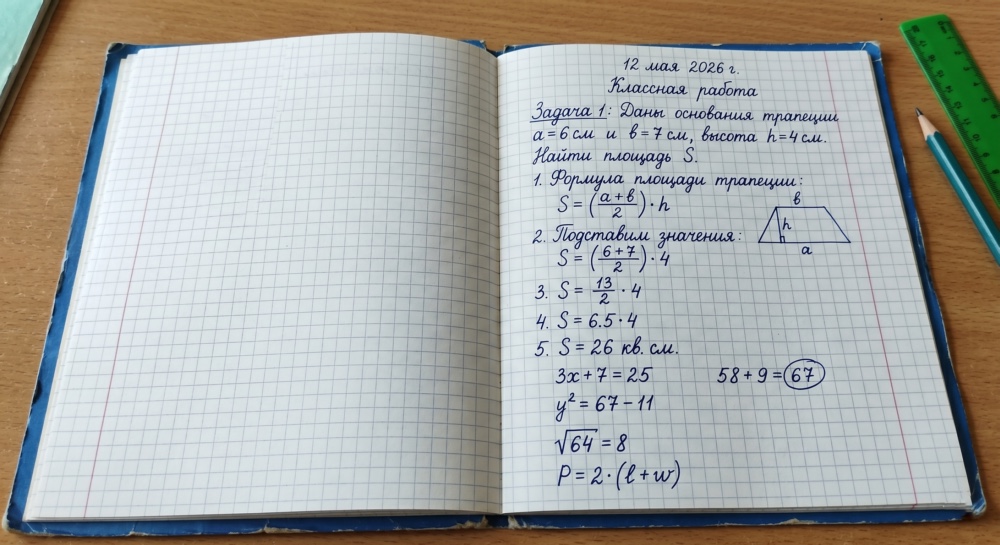 12 мая 2026 г.
Классная работа
Задача 1: Даны основания трапеции
a = 6 см и в = 7 см, высота h = 4 см.
Найти площадь S.
1. Формула площади трапеции:
S = ((a + в)/2) · h
в
h
a
2. Подставим значения:
S = ((6 + 7)/2) · 4
3. S = 13/2 · 4
4. S = 6.5 · 4
5. S = 26 кв. см.
3x + 7 = 25 58 + 9 = 67
y² = 67 − 11
√64 = 8
P = 2 · (l + w)